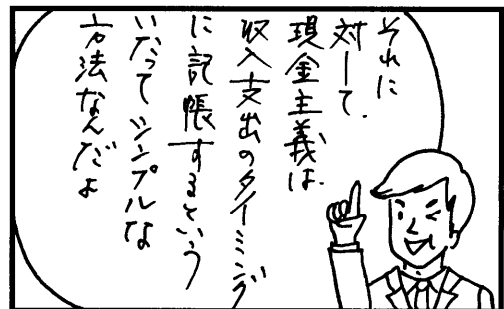 それに
対して、
現金主義は、
収入支出のタイミング
に記帳するという
いたってシンプルな
方法なんだよ